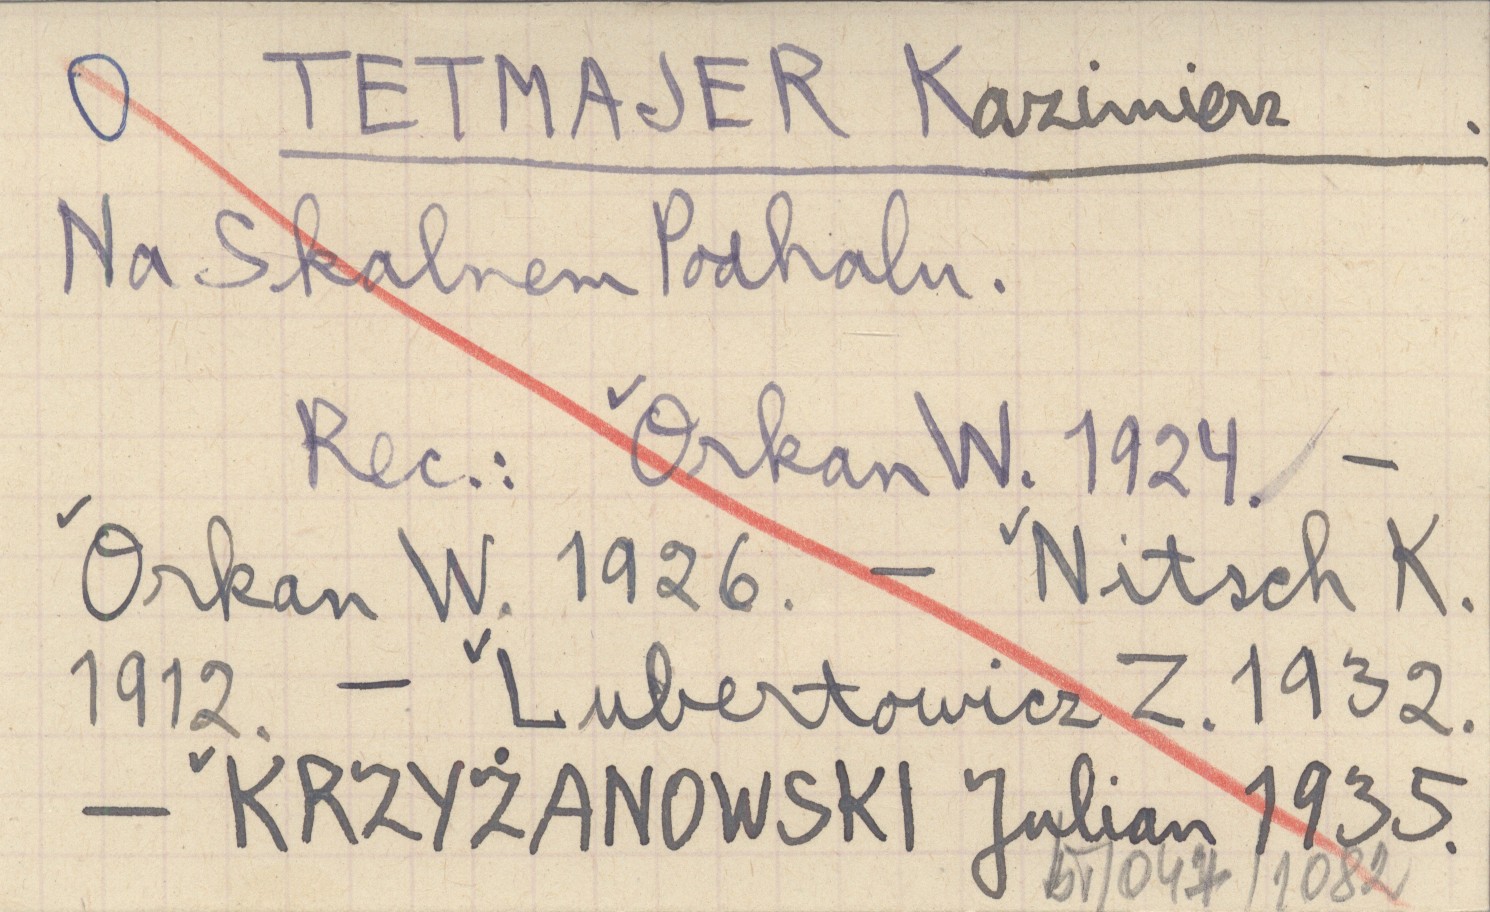 O TETMAJER Kazimierz.
Na Skalnem Podhalu.
Rec.: Orkan W. 1924. –
Orkan W. 1926. – Nitsch K.
1912. – Lubertowicz Z. 1932.
– KRZYŻANOWSKI Julian 1935.
/1082